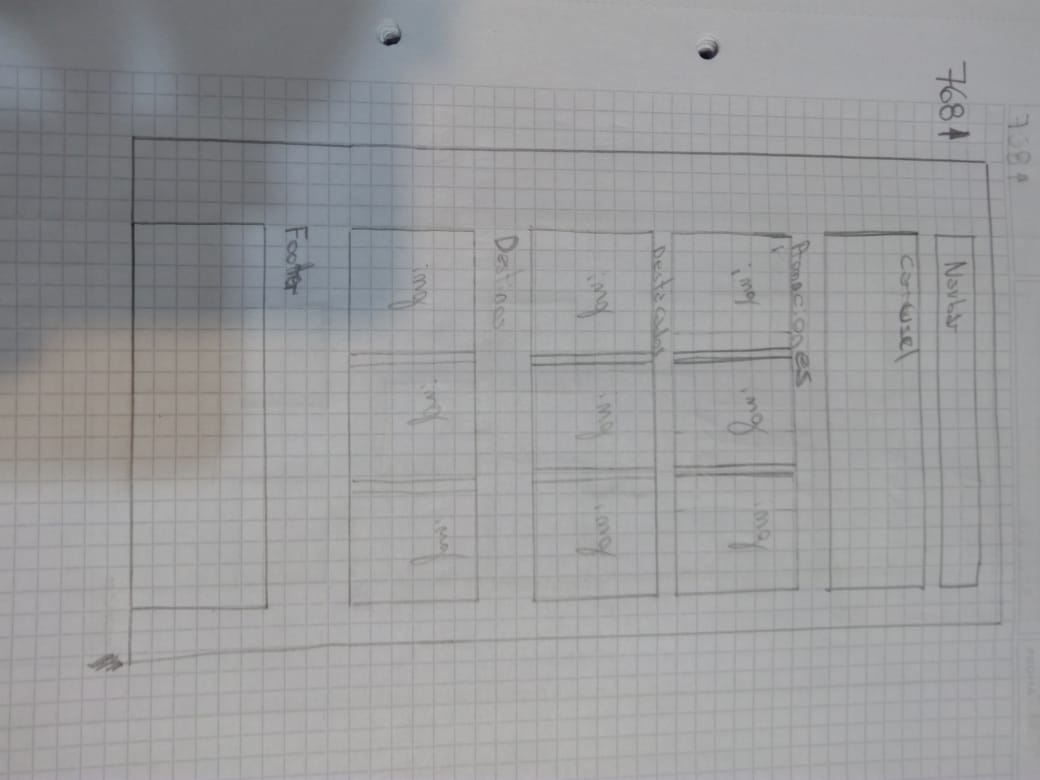 768↑
Navbar
Carousel
Promociones
img img img
Destacados
img img img
Destinos
img img img
Footer